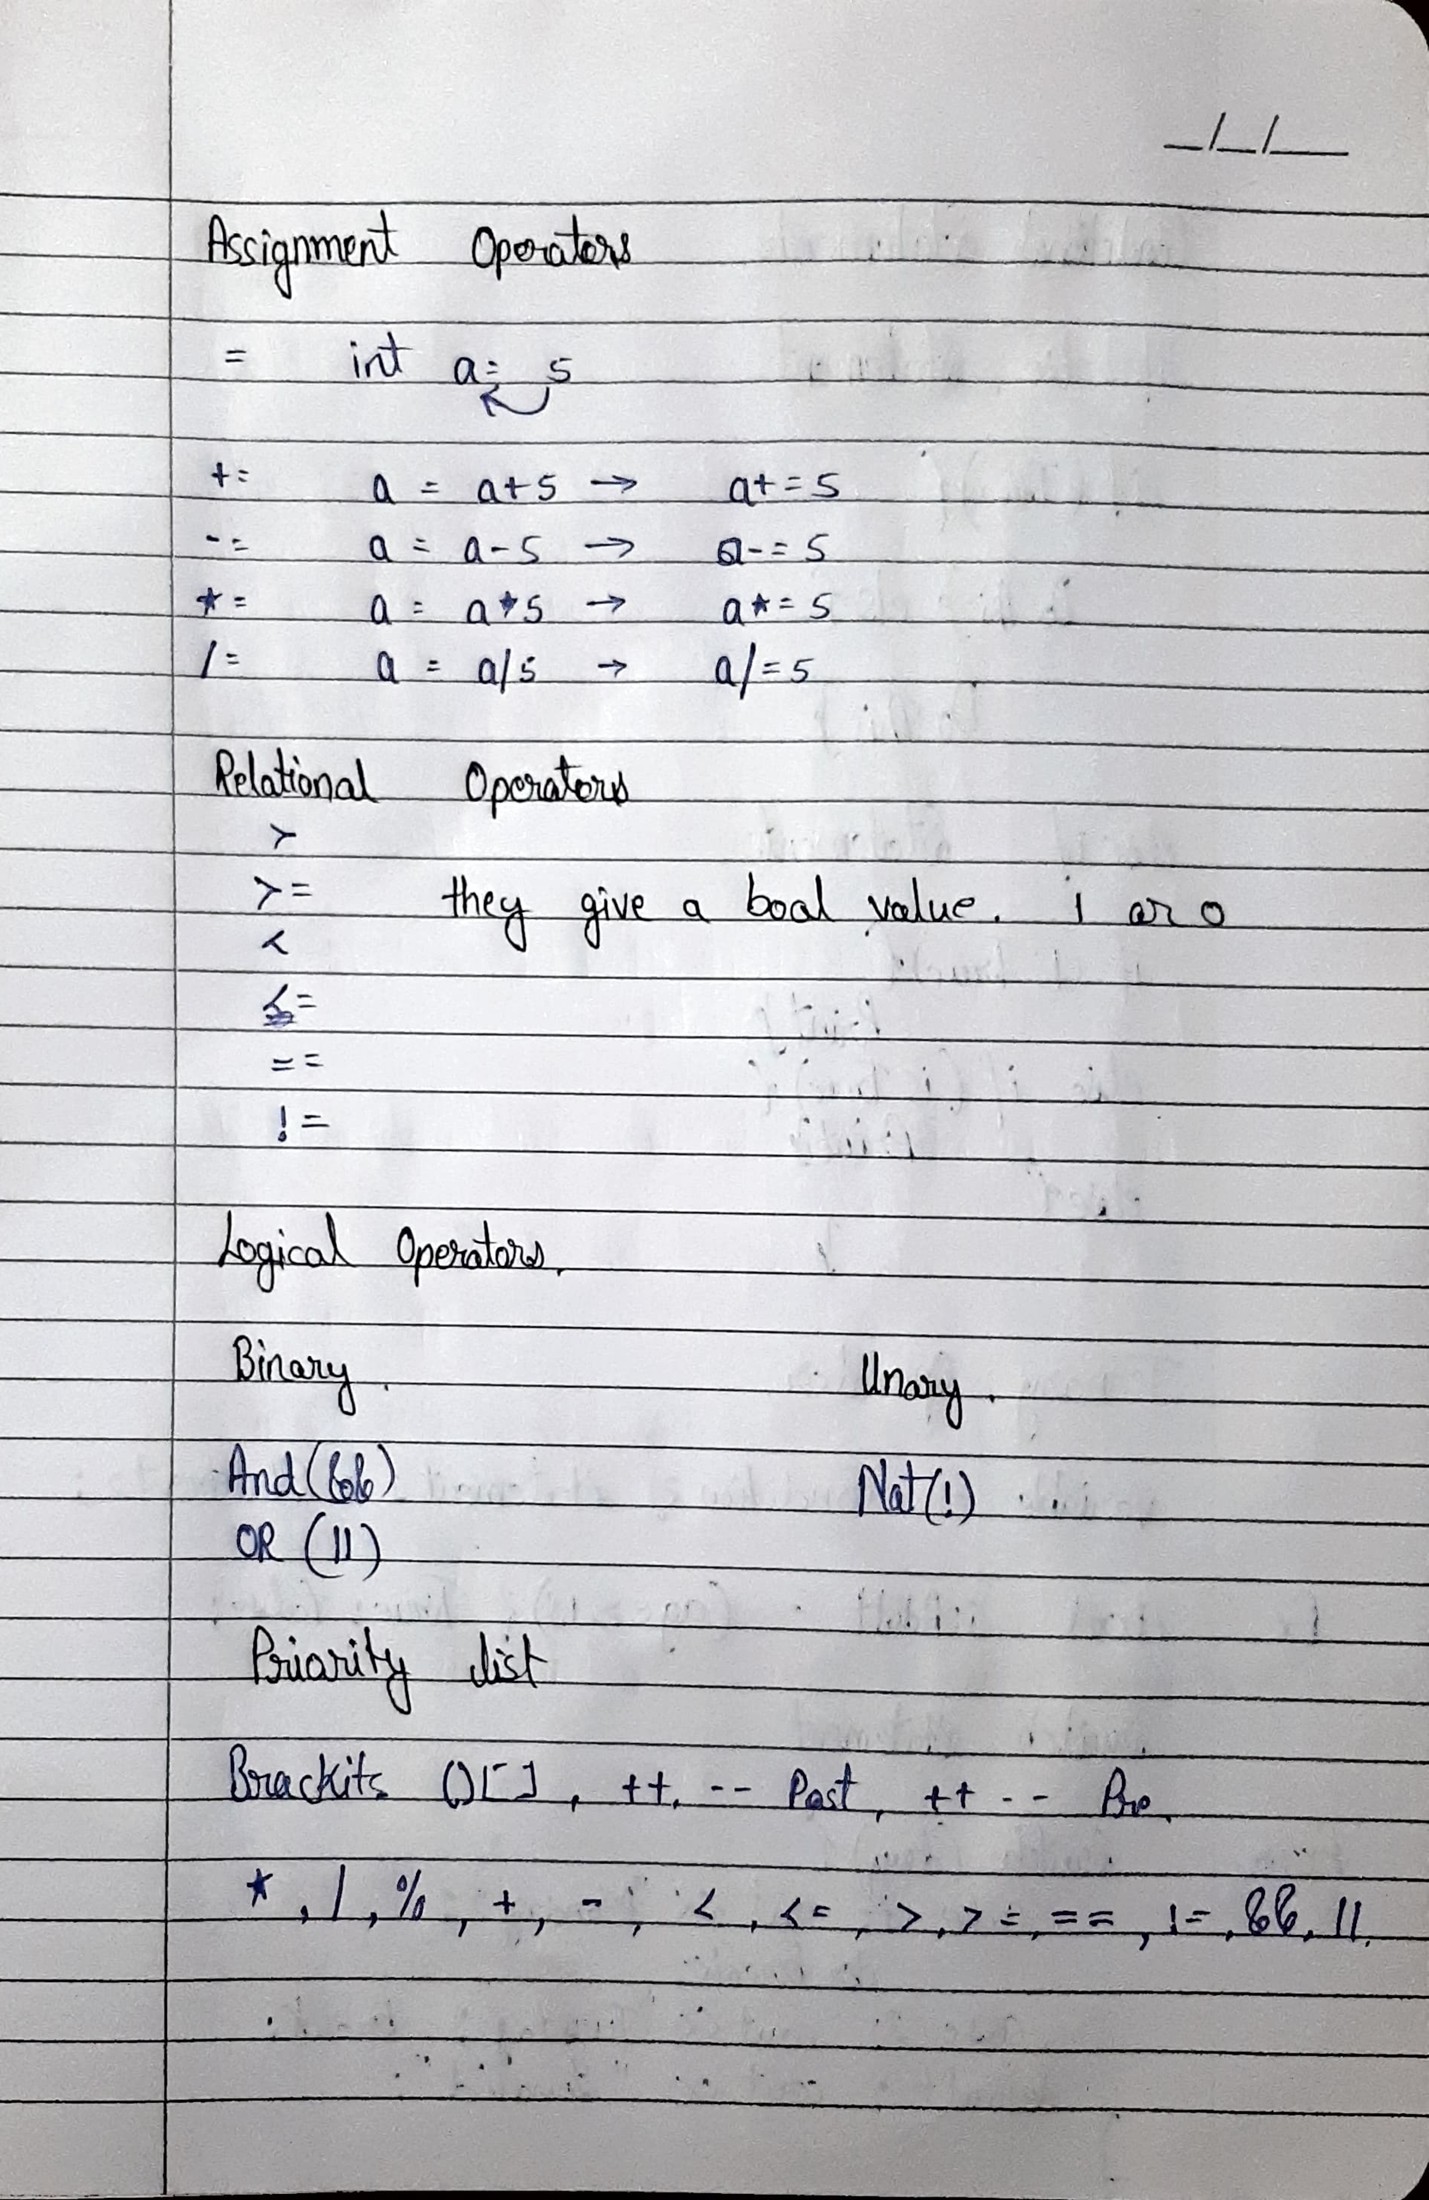 _/_/__
Assignment Operators
= int a= 5
+= a = a+5 → a+=5
-= a = a-5 → a-=5
*= a = a*5 → a*=5
/= a = a/5 → a/=5
Relational Operators
>
>= they give a bool value. 1 or 0
<
<=
==
!=
Logical Operators.
Binary. Unary.
And (&&) Not (!)
OR (||)
Priority list
Brackits ()[], ++, -- Post, ++ -- Pre.
*, /, %, +, -, <, <=, >, >=, ==, !=, &&, ||.